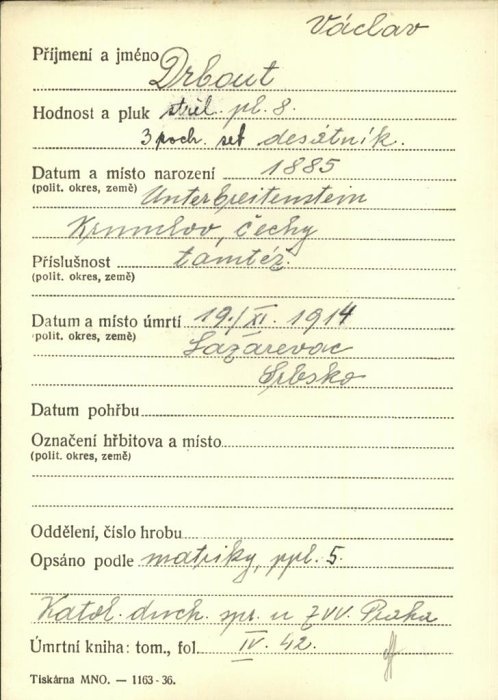 Václav
Příjmení a jméno Drbout
Hodnost a pluk střel. pl. 8.
3 poch. set desátník.
Datum a místo narození 1885
(polit. okres, země) Unterbreitenstein
Krumlov, Čechy
Příslušnost tamtéž.
(polit. okres, země)
Datum a místo úmrtí 19./XI. 1914
polit. okres, země) Lazarevac
Srbsko
Datum pohřbu
Označení hřbitova a místo
(polit. okres, země)
Oddělení, číslo hrobu
Opsáno podle matriky, ppl. 5.
Katol. duch. spr. u ZVV. Praha
Úmrtní kniha: tom., fol. IV. 42.
Tiskárna MNO. — 1163-36.